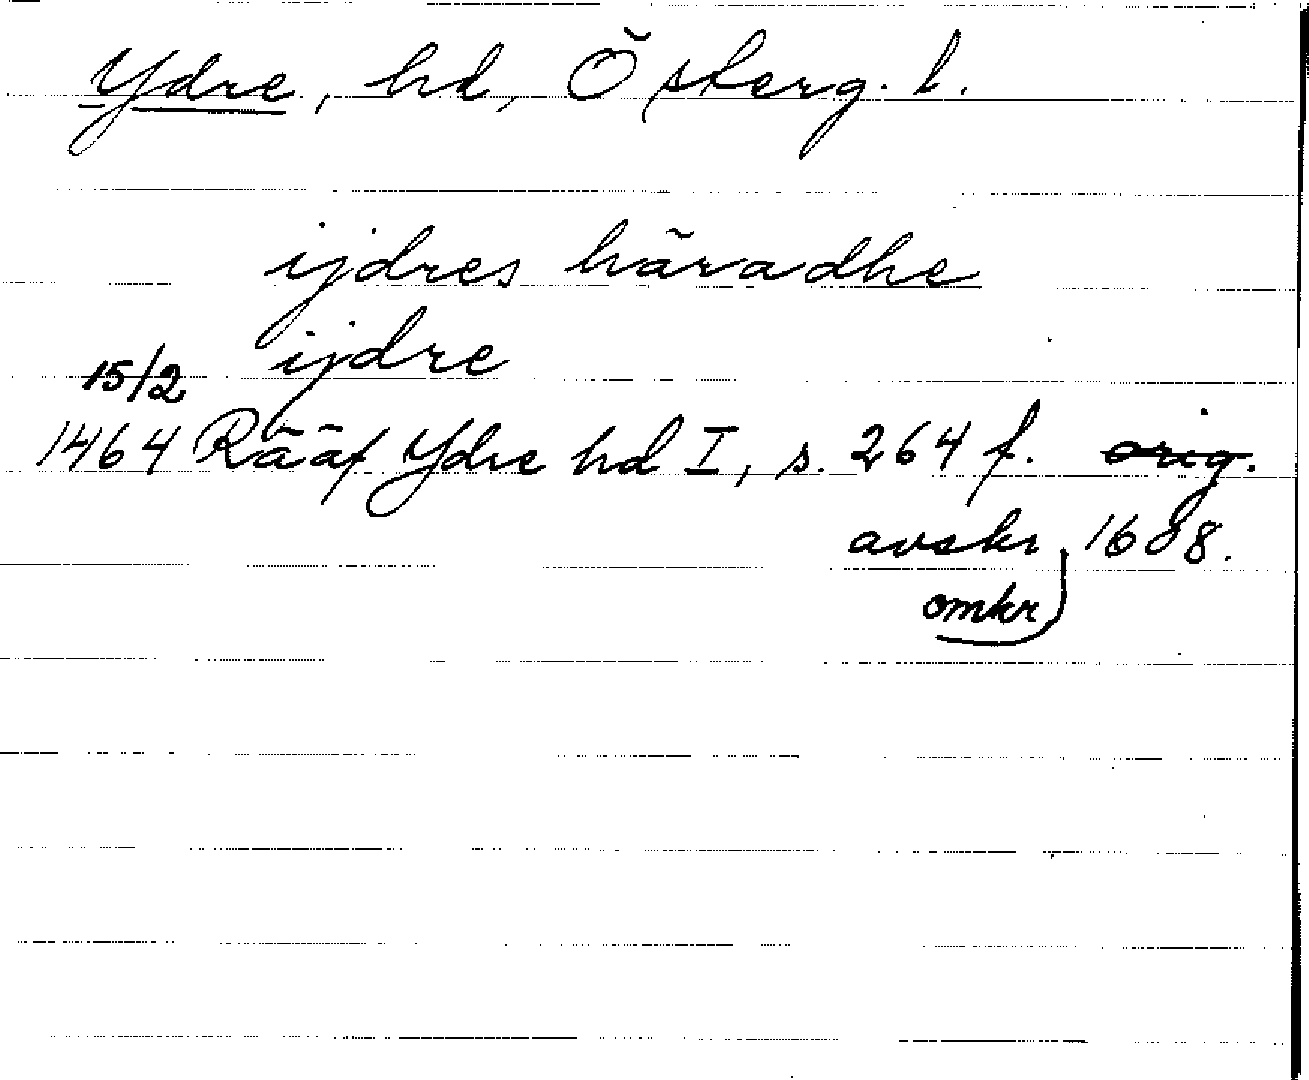 Ydre, hd, Österg. l.
ijdres häradhe
ijdre
15/2
1464 Rääf Ydre hd I, s. 264 f. orig.
avskr. 1688.
omkr